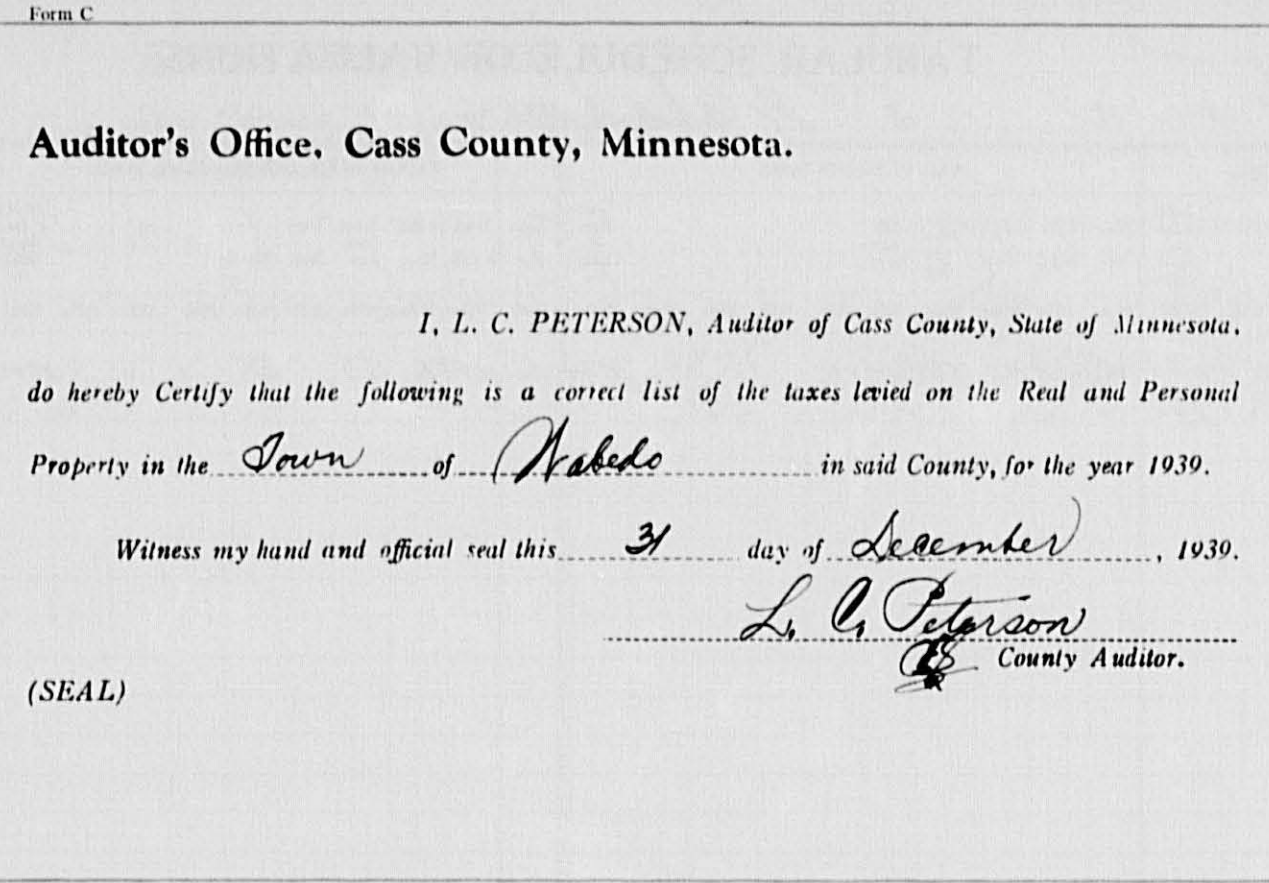 Form C
Auditor's Office, Cass County, Minnesota.
I, L. C. PETERSON, Auditor of Cass County, State of Minnesota,
do hereby Certify that the following is a correct list of the taxes levied on the Real and Personal
Property in the Town of Wabedo in said County, for the year 1939.
Witness my hand and official seal this 31 day of December, 1939.
L. C. Peterson
County Auditor.
(SEAL)